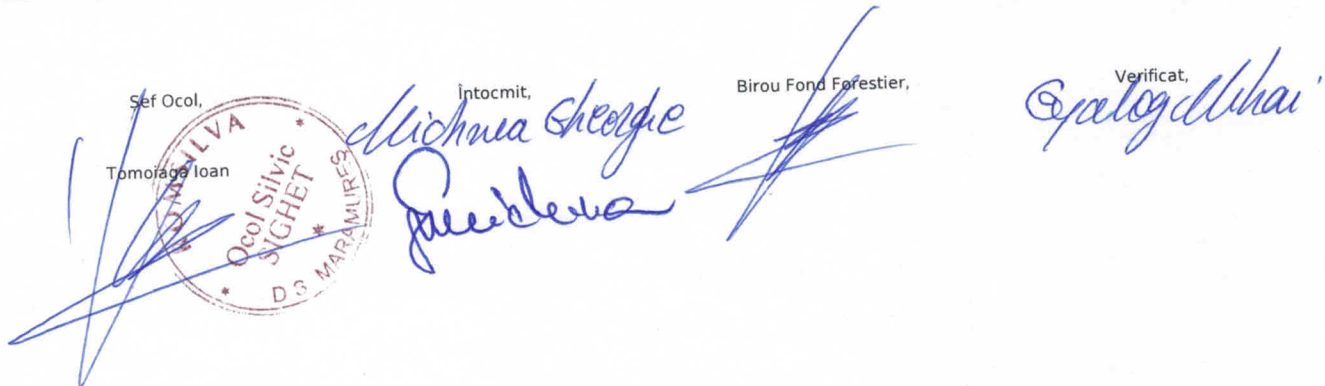 Șef Ocol,
Tomoiaga Ioan
ROMSILVA
Ocol Silvic
SIGHET
D S MARAMUREȘ
Întocmit,
Michnea Gheorghe
Birou Fond Forestier,
Verificat,
Mihai